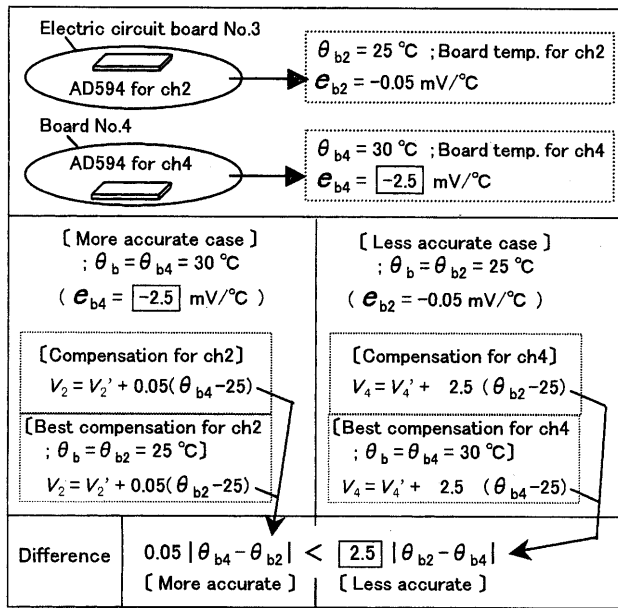 Electric circuit board No.3
AD594 for ch2
θb2 = 25 ℃ ; Board temp. for ch2
eb2 = −0.05 mV/℃
Board No.4
AD594 for ch4
θb4 = 30 ℃ ; Board temp. for ch4
eb4 = -2.5 mV/℃
[ More accurate case ]
; θb = θb4 = 30 ℃
( eb4 = -2.5 mV/℃ )
[Compensation for ch2]
V2 = V2' + 0.05(θb4−25)
[Best compensation for ch2
; θb = θb2 = 25 ℃]
V2 = V2' + 0.05(θb2−25)
[ Less accurate case ]
; θb = θb2 = 25 ℃
( eb2 = −0.05 mV/℃ )
[Compensation for ch4]
V4 = V4' + 2.5 (θb2−25)
[Best compensation for ch4
; θb = θb4 = 30 ℃]
V4 = V4' + 2.5 (θb4−25)
Difference
0.05 |θb4−θb2| < 2.5 |θb2−θb4|
[ More accurate ] [ Less accurate ]